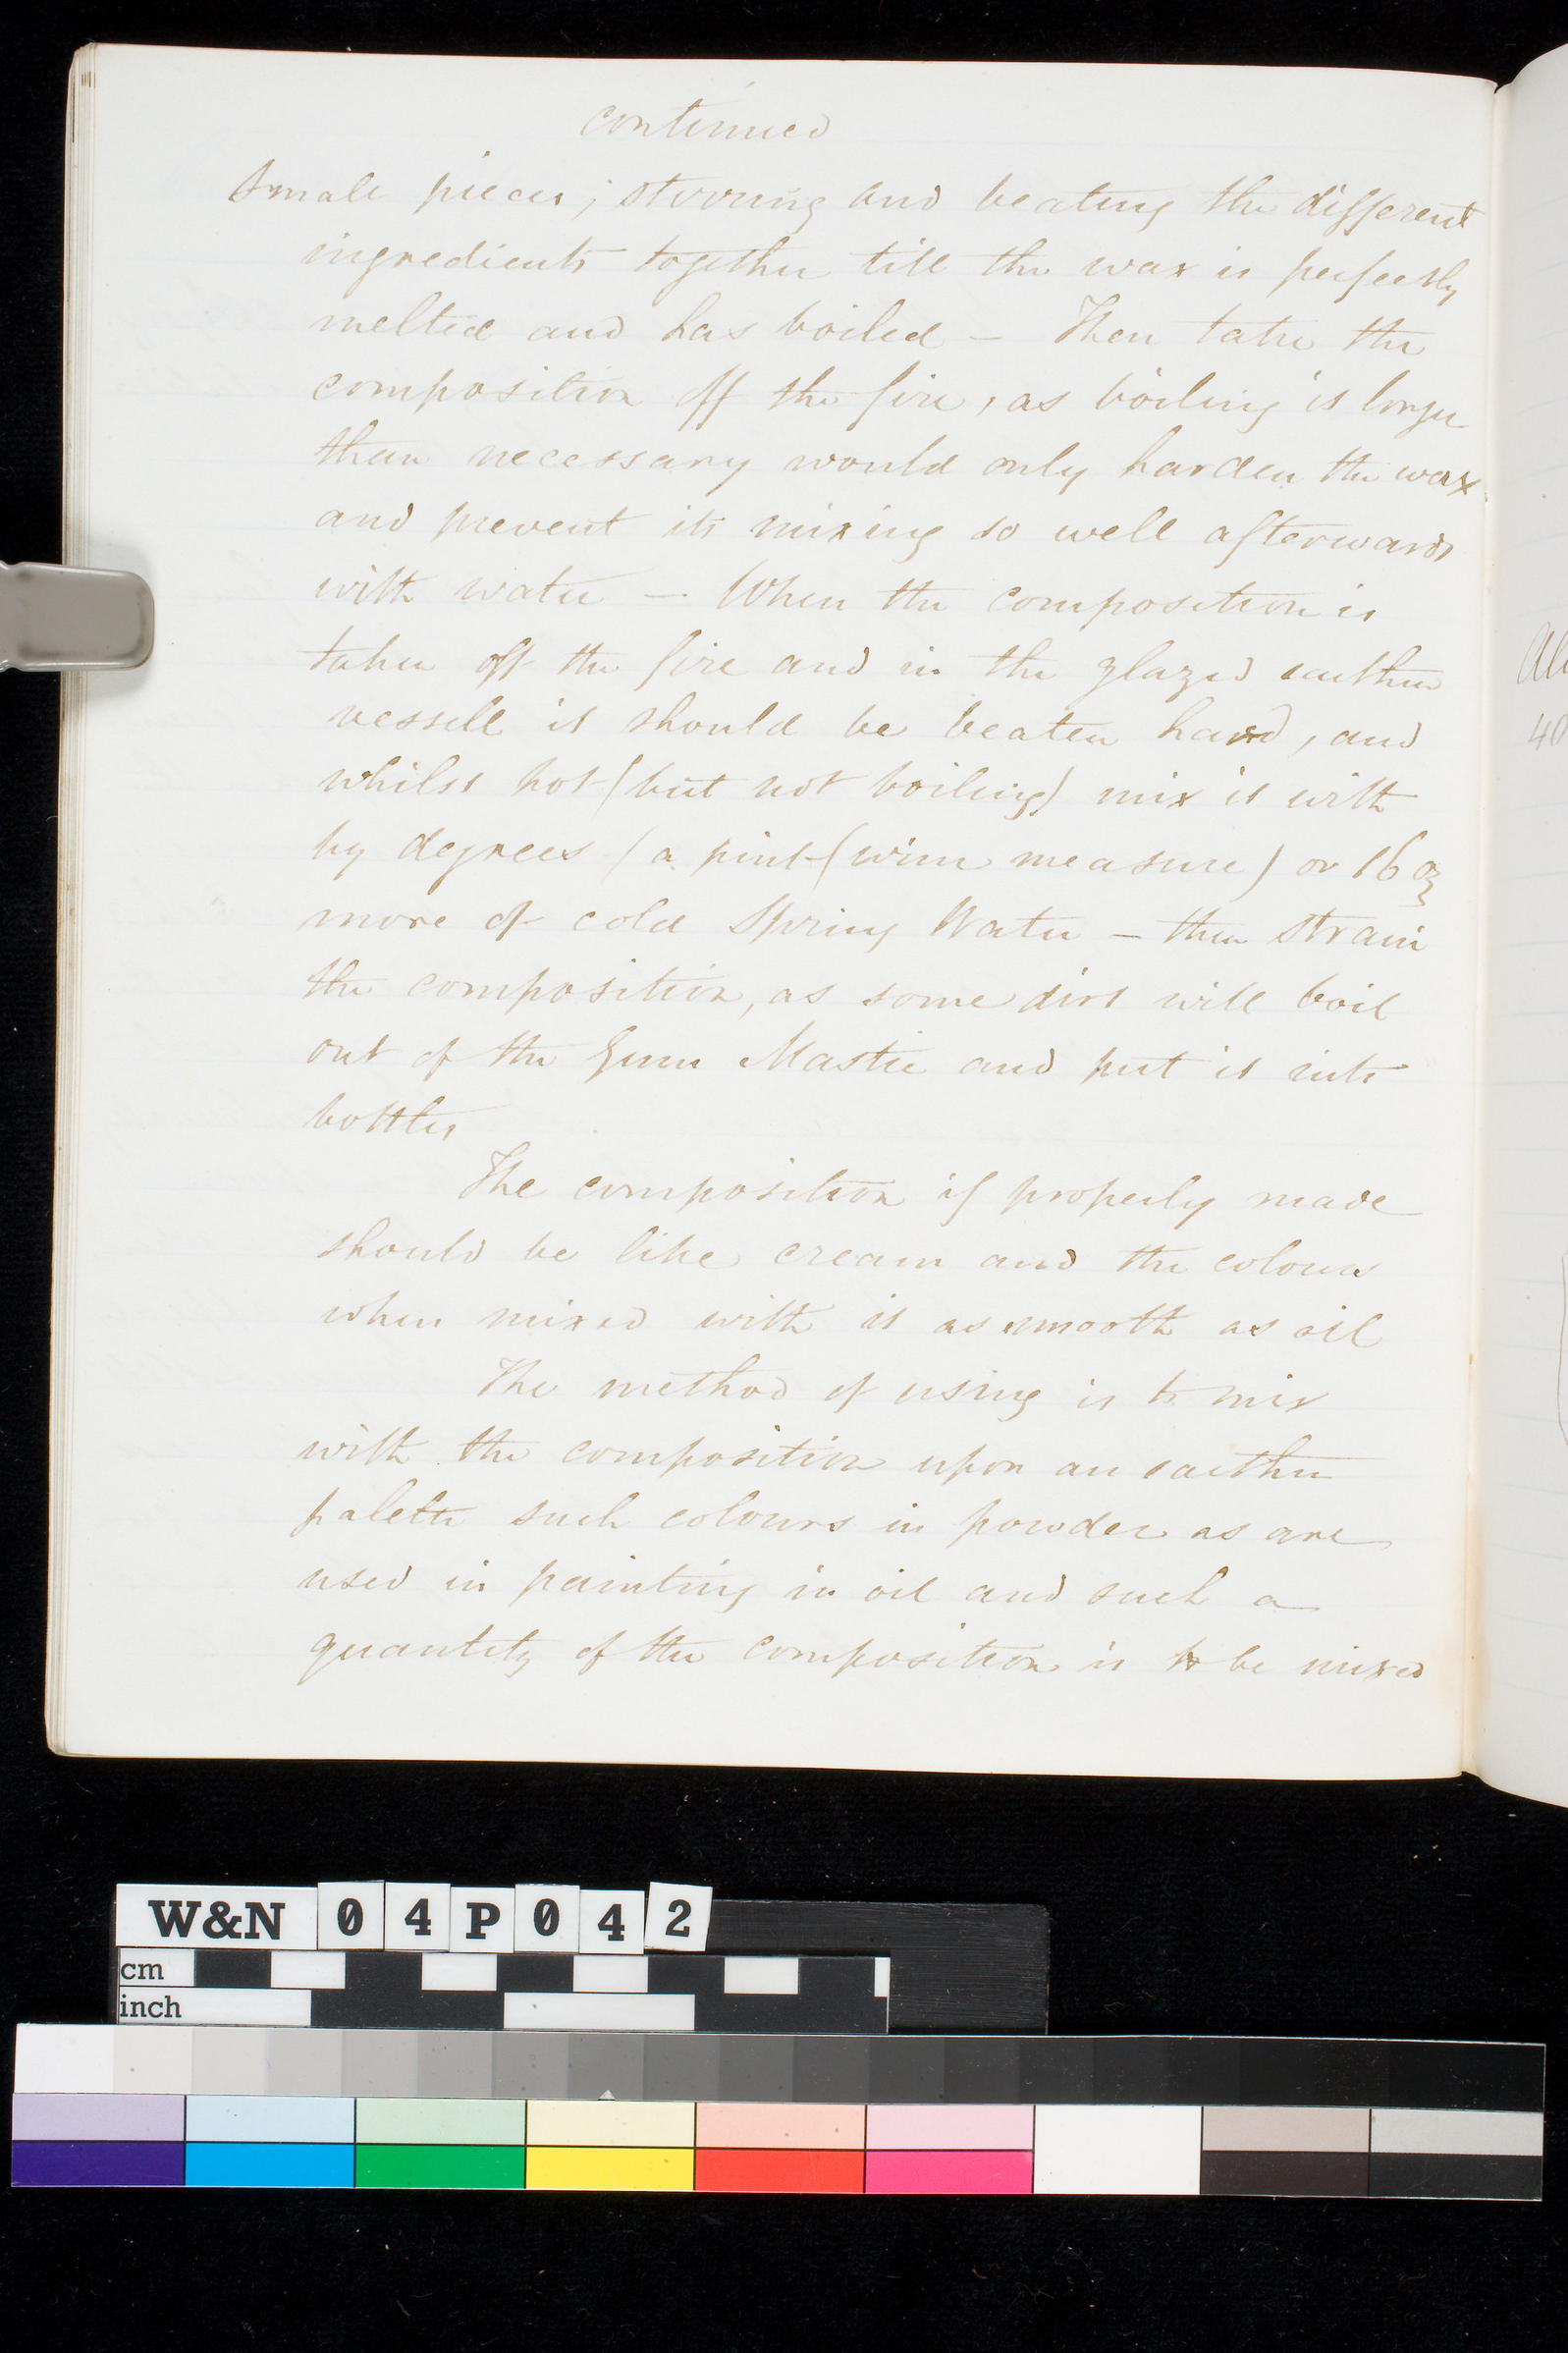 continued
small pieces; stirring and beating the different
ingredients together till the wax is perfectly
melted and has boiled – Then take the
composition off the fire, as boiling it longer
than necessary would only harden the wax
and prevent its mixing so well afterwards
with water – When the composition is
taken off the fire and in the glazed earthen
vessell it should be beaten hard, and
whilst hot (but not boiling) mix it with
by degrees (a pint (wine measure) or 16 oz
more of cold Spring Water – then strain
the composition, as some dirt will boil
out of the Gum Mastic and put it into
bottles
The composition if properly made
should be like cream and the colours
when mixed with it as smooth as oil
The method of using is to mix
with the composition upon an earthen
palette such colours in powder as are
used in painting in oil and such a
quantity of the composition is to be mixed
40
W&N 04P042
cm
inch